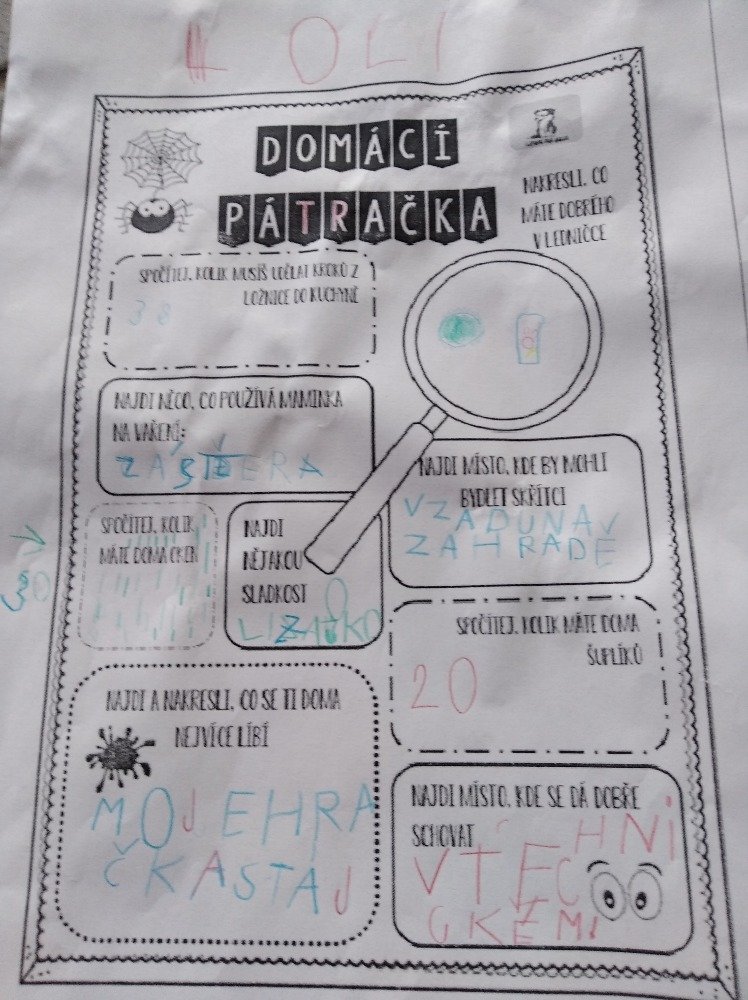 OLI
DOMÁCÍ
PÁTRAČKA
NAKRESLI, CO
MÁTE DOBRÉHO
V LEDNIČCE
SPOČÍTEJ, KOLIK MUSÍŠ UDĚLAT KROKŮ Z
LOŽNICE DO KUCHYNĚ
38
NAJDI NĚCO, CO POUŽÍVÁ MAMINKA
NA VAŘENÍ:
ZÁSTĚRA
NAJDI MÍSTO, KDE BY MOHLI
BYDLET SKŘÍTCI
VZADUNAV
ZAHRADE
SPOČÍTEJ, KOLIK
MÁTE DOMA OKEN
30
NAJDI
NĚJAKOU
SLADKOST
LIZATKO
SPOČÍTEJ, KOLIK MÁTE DOMA
ŠUPLÍKŮ
20
NAJDI A NAKRESLI, CO SE TI DOMA
NEJVÍCE LÍBÍ
MOJEHRA
ČKASTAJ
NAJDI MÍSTO, KDE SE DÁ DOBŘE
SCHOVAT
HNÍ